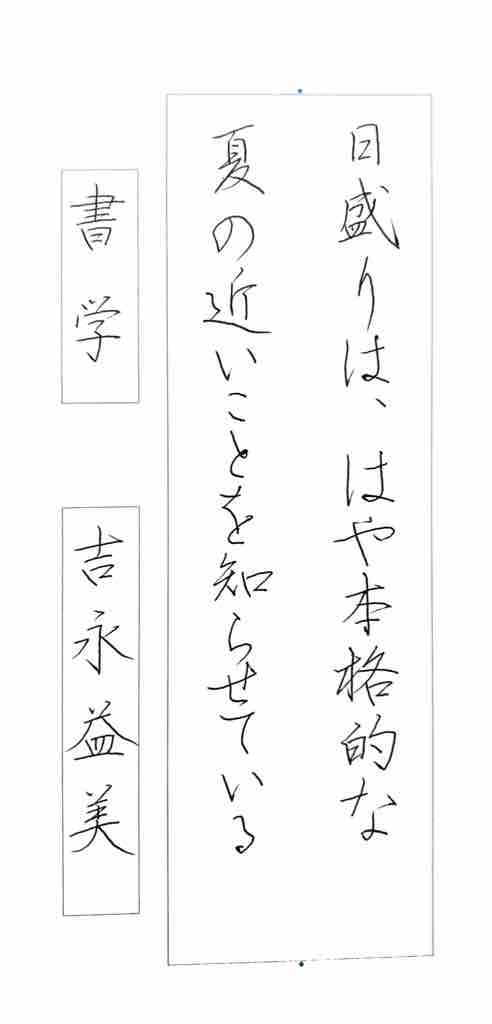 日盛りは、はや本格的な
夏の近いことを知らせている
書学
吉永益美